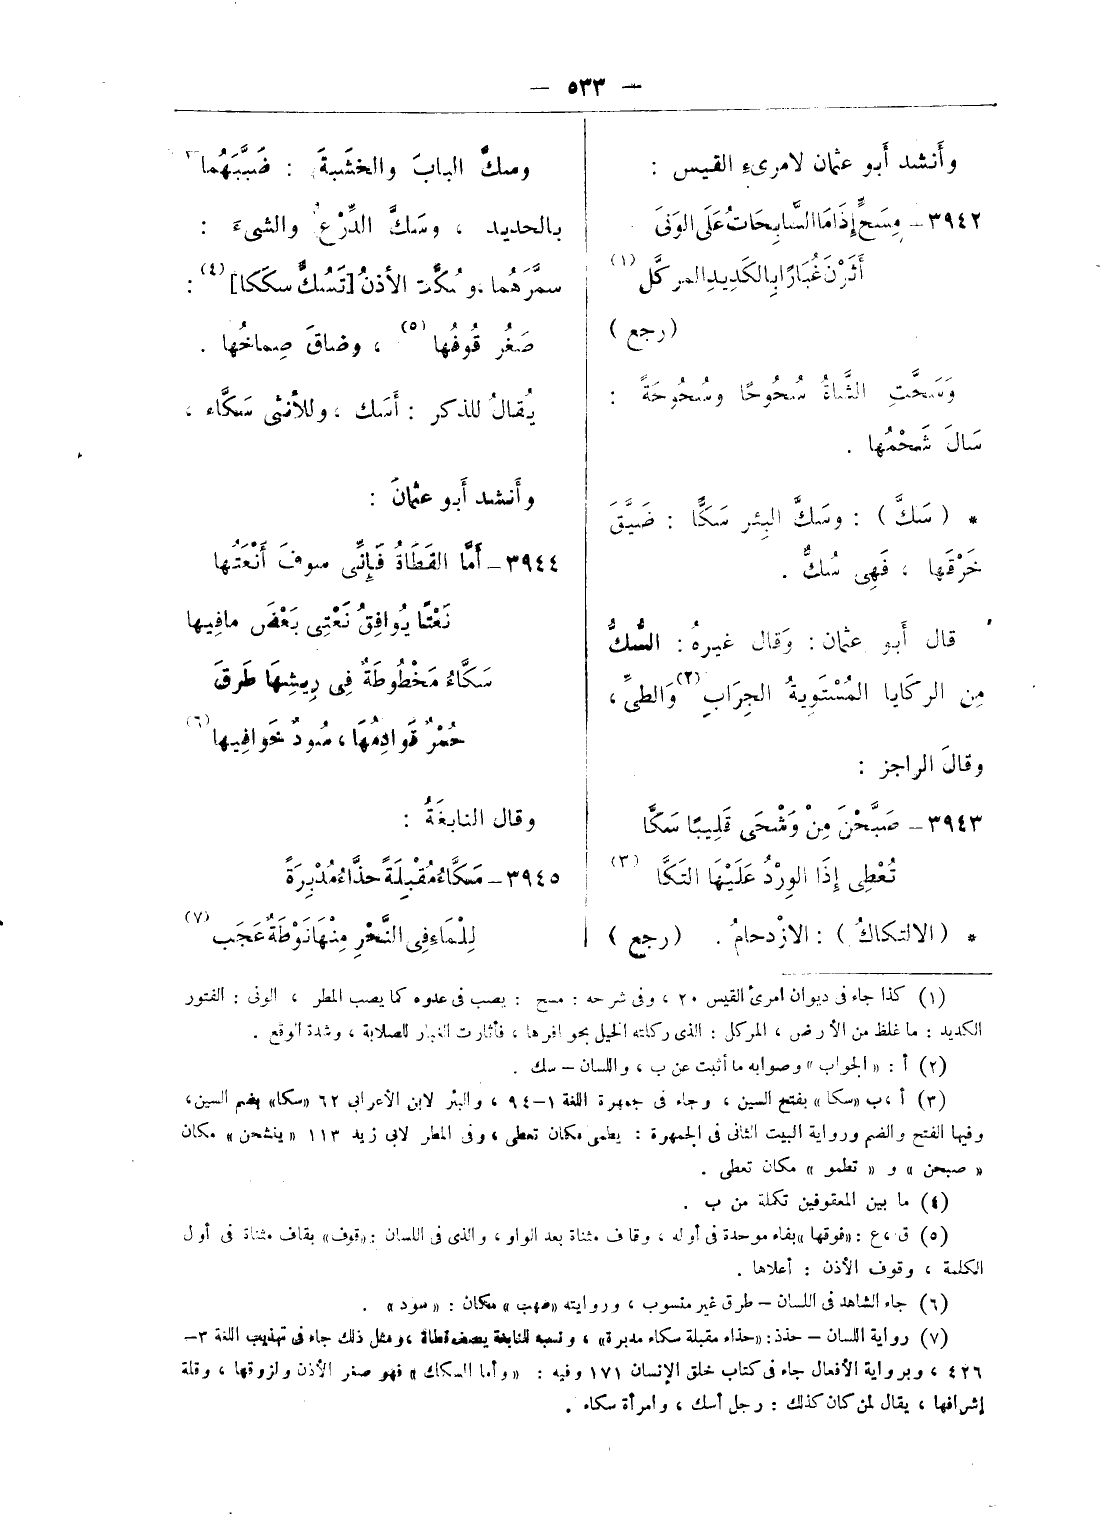 — ٥٣٣ —
وأَنشد أَبو عثمان لامرىءِ القيس :
٣٩٤٢ – مِسَحٍّ إِذَا مَا السَّابِحَاتُ عَلَى الوَنَى
أَثَرْنَ غُبَارًا بِالكَدِيدِ المركَّل (١)
(رجع)
وَسَحَّتِ الشَّاةُ سُحُوحًا وسُحُوحَةً :
سَالَ شَحْمُها .
* (سَكَّ) : وسَكَّ البِئر سَكًّا : ضَيَّقَ
خَرْقَها ، فَهِى سُكٌّ .
قال أَبو عثمان : وَقال غيرهُ : السُّكُّ
مِن الركَايا المُسْتَوِيةُ الجِرَابِ (٢) وَالطىِّ ،
وقالَ الراجز :
٣٩٤٣ – صَبَّحْنَ مِنْ وَشْحَى قَلِيبًا سَكَّا
تُعْطِى إِذَا الوِرْدُ عَلَيْهَا التَكَّا (٣)
* (الالتكاكُ) : الازْدحامُ . (رجع)
وسكَّ البابَ والخشَبةَ : ضَبَّبَهُما
بالحديد ، وسَكَّ الدِّرْعَ والشىءَ :
سمَّرَهُما ، وسُكَّت الأذنُ [تَسُكُّ سككا] (٤) :
صَغُر قُوفُها (٥) ، وضاقَ صِماخُها .
يُقالُ للذكر : أَسَك ، وللأنثى سَكَّاء ،
وأَنشد أَبو عثمانَ :
٣٩٤٤ – أَمَّا القَطَاةُ فَإِنِّى سوفَ أَنْعَتُها
نَعْتًا يُوافِقُ نَعْتِى بَعْضَ مافِيها
سَكَّاءُ مَخْطُوطَةٌ فِى رِيشِهَا طَرَقَ
حُمْرٌ قَوادِمُهَا ، سُودٌ خَوافِيها (٦)
وقال النابغَةُ :
٣٩٤٥ – سَكَّاءُ مُقْبِلَةً حذَّاءُ مُدْبِرَةً
لِلْمَاءِ فِى النَّحْرِ مِنْهَا نَوْطَةٌ عَجَب (٧)
(١) كذا جاء فى ديوان امرئ القيس ٢٠ ، وفى شرحه : مسح : يصب فى عدوه كما يصب المطر ، الونى : الفتور
الكديد : ما غلظ من الأرض ، المركل : الذى ركلته الخيل بحوافرها ، فأثارت الغبار للصلابة ، وشدة الوقع .
(٢) أ : «الجواب» وصوابه ما أثبت عن ب ، واللسان – سك .
(٣) أ ، ب «سكا» بفتح السين ، وجاء فى جمهرة اللغة ١–٩٤ ، والبئر لابن الأعرابى ٦٢ «سكا» بضم السين ،
وفيها الفتح والضم ورواية البيت الثانى فى الجمهرة : يطمى مكان تعطى ، وفى المطر لابى زيد ١١٣ «ينشحن» مكان
«صبحن» و «تطمو» مكان تعطى .
(٤) ما بين المعقوفين تكملة من ب .
(٥) ق ، ع : «فوقها» بفاء موحدة فى أوله ، وقاف مثناة بعد الواو ، والذى فى اللسان : «قوف» بقاف مثناة فى أول
الكلمة ، وقوف الأذن : أعلاها .
(٦) جاء الشاهد فى اللسان – طرق غير منسوب ، وروايته «صهب» مكان : «سود» .
(٧) رواية اللسان – حذذ : «حذاء مقبلة سكاء مدبرة» ، ونسبه للنابغة يصف قطاة ، ومثل ذلك جاء فى تهذيب اللغة ٣–
٤٢٦ ، وبرواية الأفعال جاء فى كتاب خلق الإنسان ١٧١ وفيه : «وأما السكاك» فهو صغر الأذن ولزوقها ، وقلة
إشرافها ، يقال لمن كان كذلك : رجل أسك ، وامرأة سكاء .